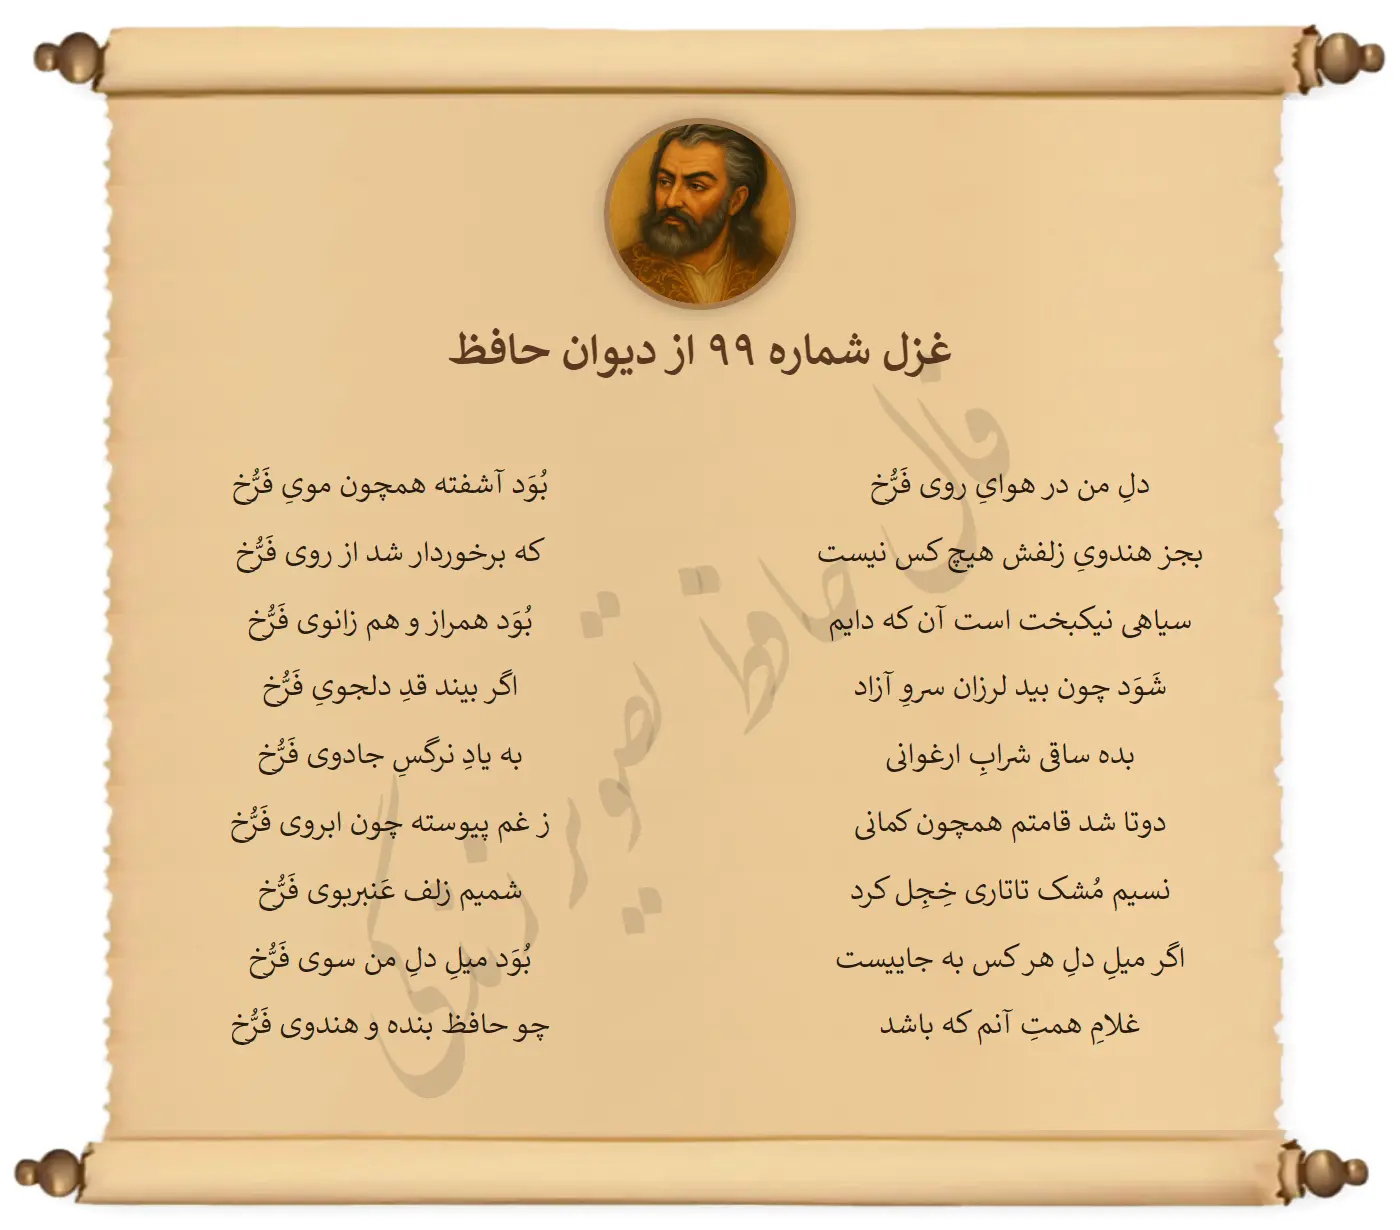 غزل شماره ۹۹ از دیوان حافظ
دلِ من در هوایِ روی فَرُّخ بُوَد آشفته همچون مویِ فَرُّخ
بجز هندویِ زلفش هیچ کس نیست که برخوردار شد از روی فَرُّخ
سیاهی نیکبخت است آن که دایم بُوَد همراز و هم زانوی فَرُّخ
شَوَد چون بید لرزان سروِ آزاد اگر بیند قدِ دلجویِ فَرُّخ
بده ساقی شرابِ ارغوانی به یادِ نرگسِ جادوی فَرُّخ
دوتا شد قامتم همچون کمانی ز غم پیوسته چون ابروی فَرُّخ
نسیم مُشک تاتاری خِجِل کرد شمیم زلف عَنبربوی فَرُّخ
اگر میلِ دلِ هر کس به جاییست بُوَد میلِ دلِ من سوی فَرُّخ
غلامِ همتِ آنم که باشد چو حافظ بنده و هندوی فَرُّخ
فال حافظ تصویر زندگی